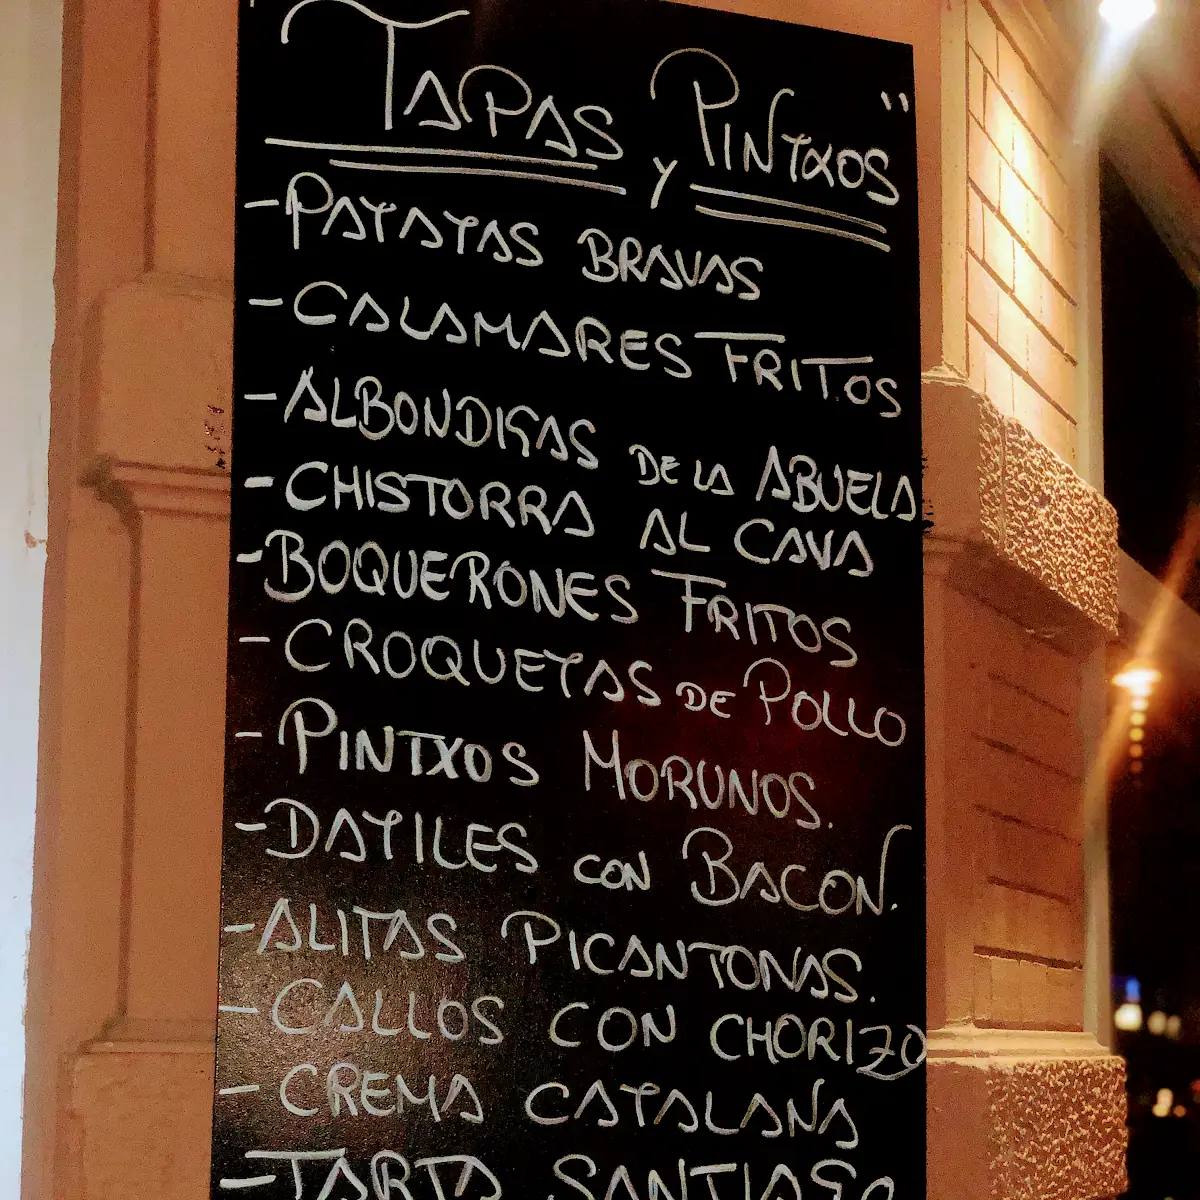 TAPAS y PINTXOS"
-PATATAS BRAVAS
-CALAMARES FRITOS
-ALBONDIGAS DE LA ABUELA
-CHISTORRA AL CAVA
-BOQUERONES FRITOS
-CROQUETAS DE POLLO
-PINTXOS MORUNOS.
-DATILES CON BACON.
-ALITAS PICANTONAS.
-CALLOS CON CHORIZO
-CREMA CATALANA
-TARTA SANTIAGO